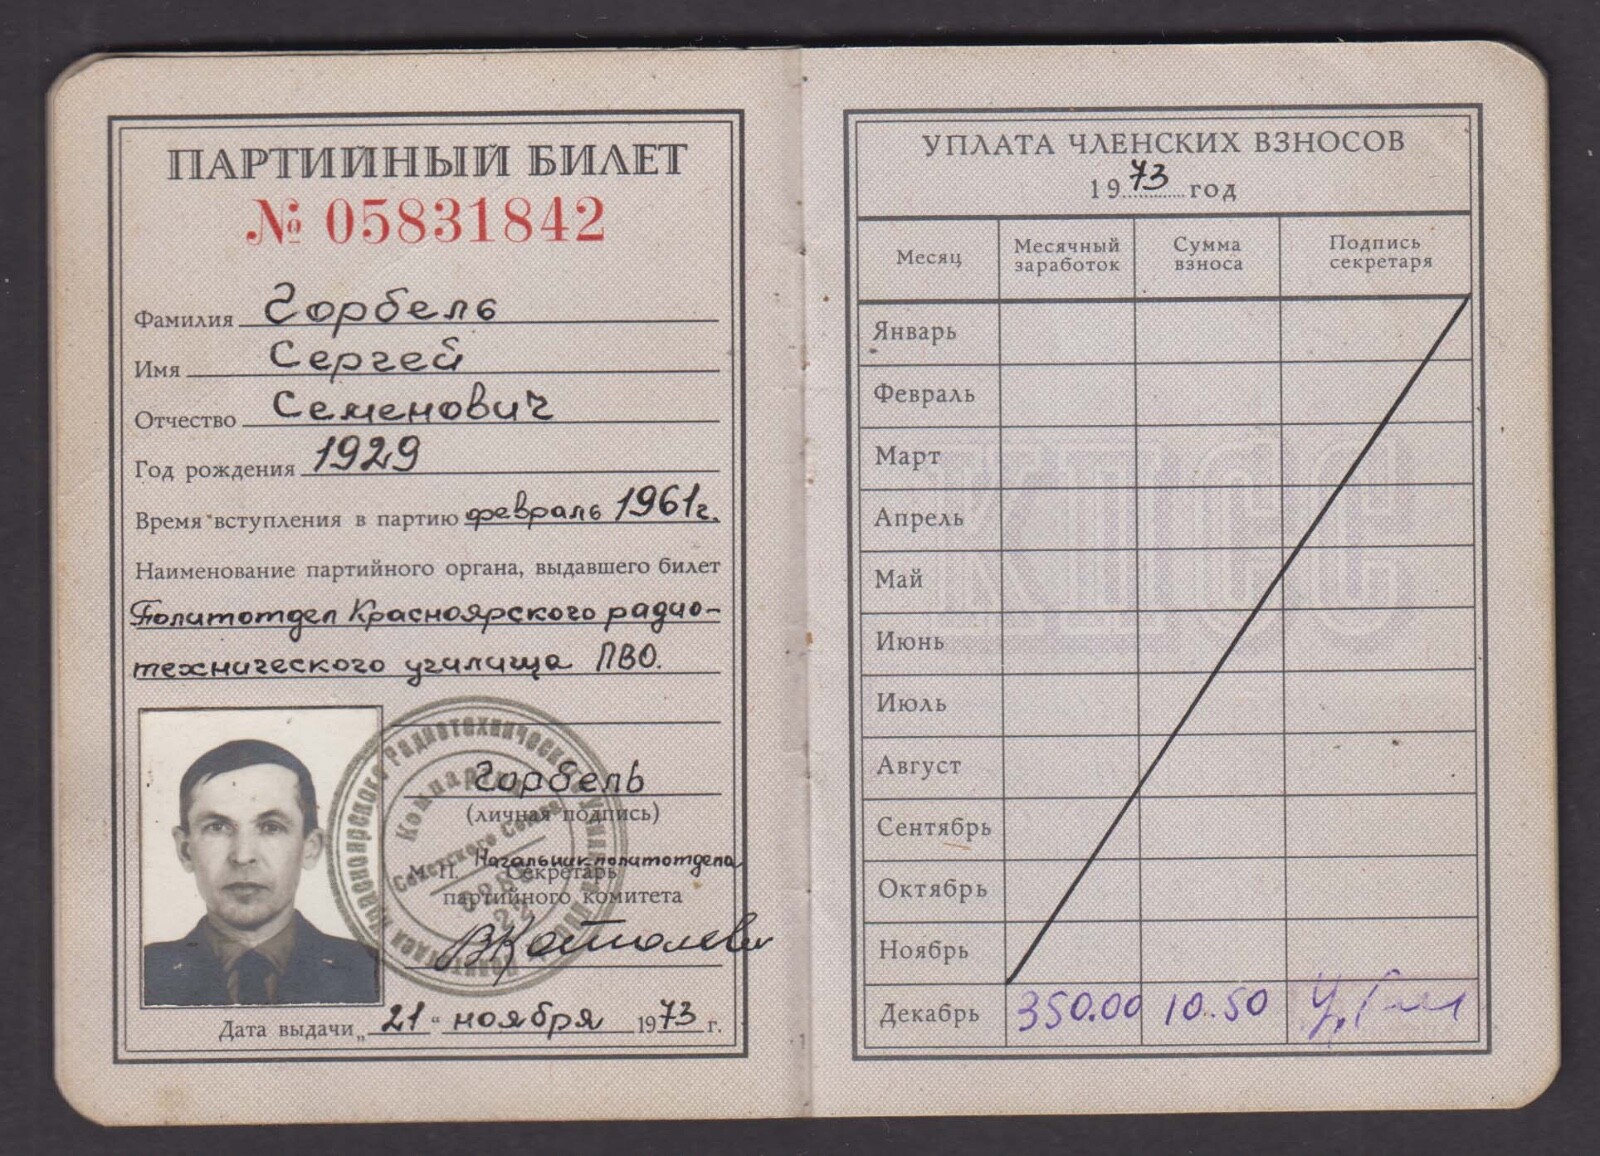 ПАРТИЙНЫЙ БИЛЕТ
№ 05831842
Фамилия Горбель
Имя Сергей
Отчество Семенович
Год рождения 1929
Время вступления в партию февраль 1961г.
Наименование партийного органа, выдавшего билет
Политотдел Красноярского радио-
технического училища ПВО.
Горбель
(личная подпись)
М. П. Начальник политотдела
Секретарь
партийного комитета
Дата выдачи „21“ ноября 1973 г.
Красноярского Радиотехнического училища
Компартия
Советского Союза
УПЛАТА ЧЛЕНСКИХ ВЗНОСОВ
1973 год
Месяц Месячный заработок Сумма взноса Подпись секретаря
Январь
Февраль
Март
Апрель
Май
Июнь
Июль
Август
Сентябрь
Октябрь
Ноябрь
Декабрь 350.00 10.50